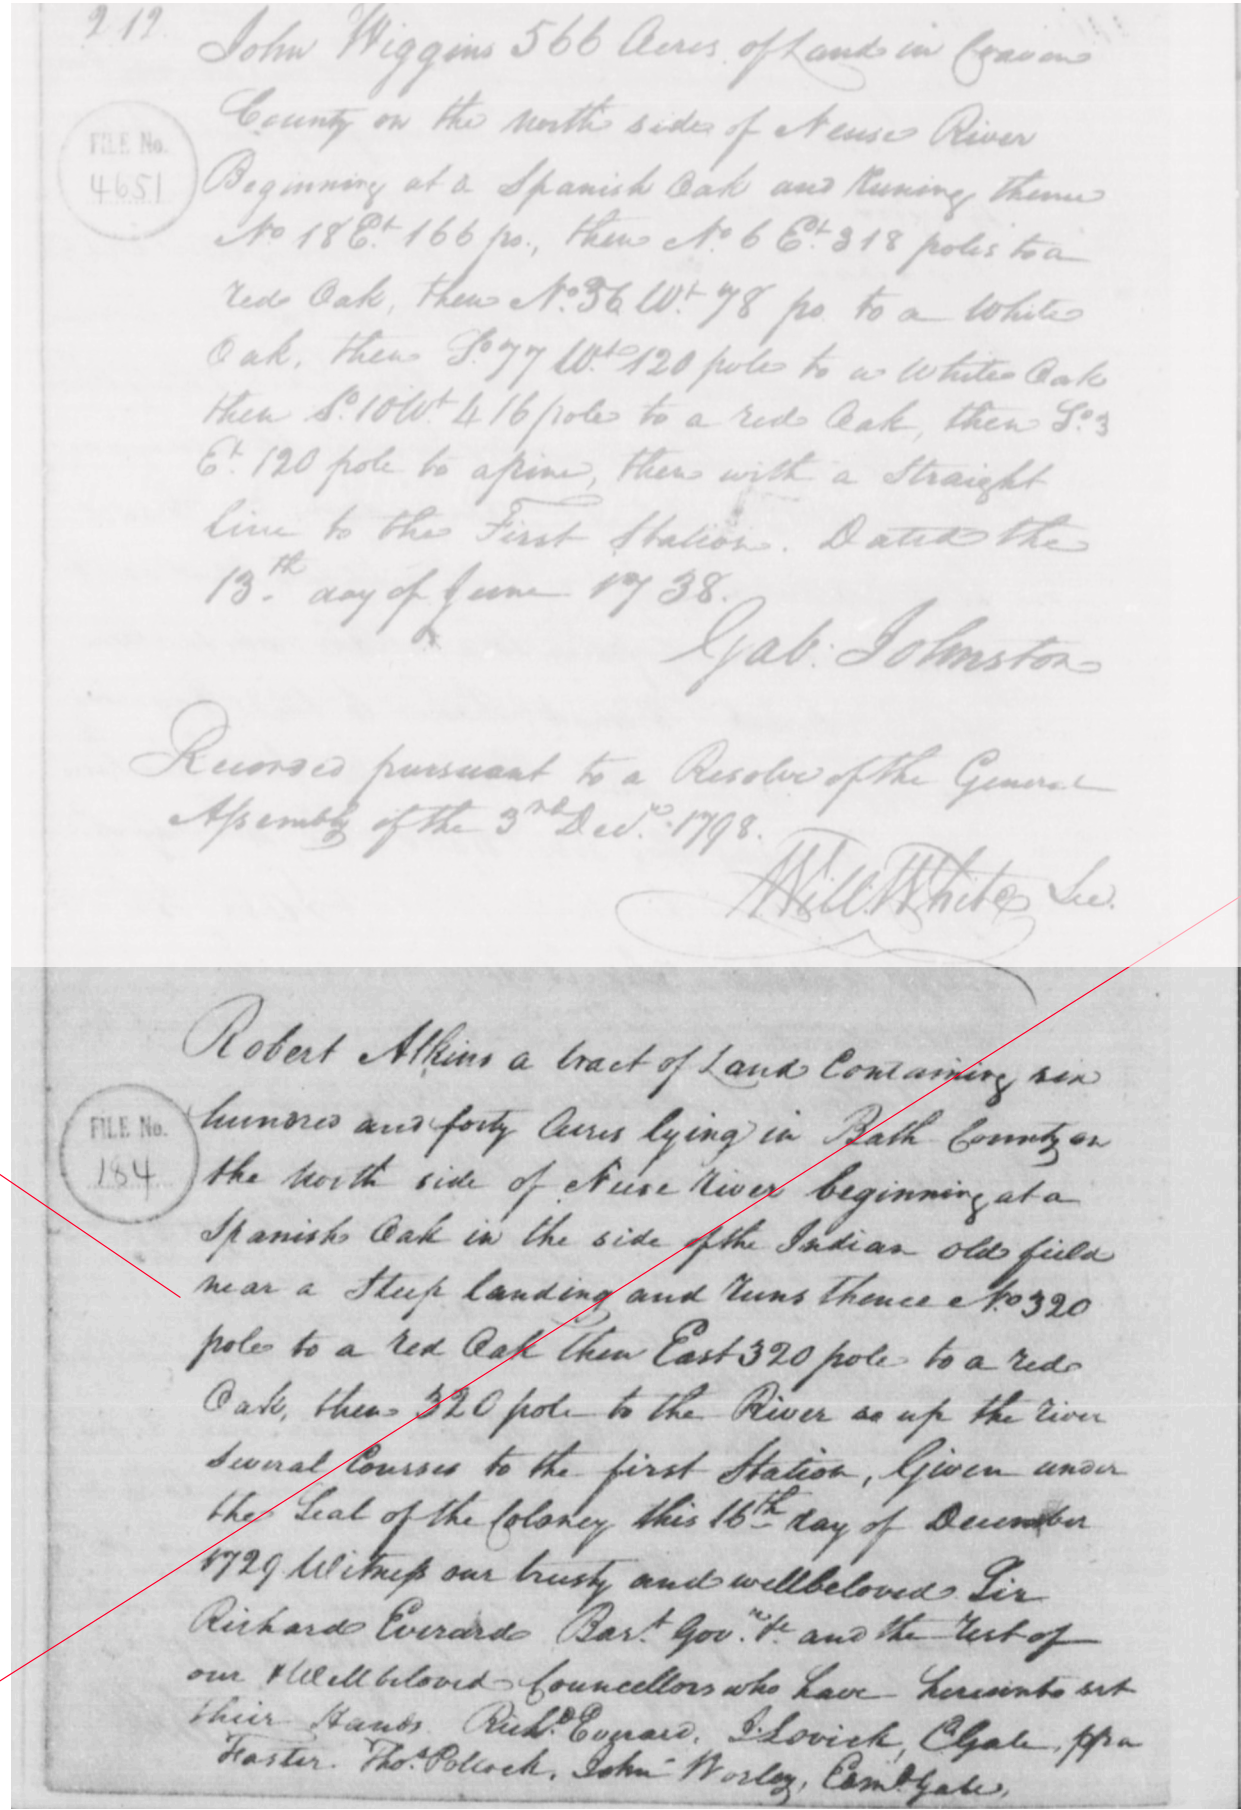 212
John Wiggins 566 Acres of Land in Craven
County on the north side of Neuse River
FILE No.
4651
Beginning at a Spanish Oak and Runing thence
No 18 Et. 166 po., then No. 6 Et. 318 poles to a
red Oak, then No. 36 Wt. 78 po to a White
Oak, then So. 77 Wt. 120 pole to a White Oak
then So. 10 Wt. 416 pole to a red Oak, then So. 3
Et. 120 pole to a pine, then with a Straight
line to the First Station. Dated the
13th. day of June 1738.
Gab: Johnston
Recorded pursuant to a Resolve of the General
Assembly of the 3rd Decr. 1798.
Will White Sec.
Robert Atkins a tract of Land Containing six
hundred and forty Acres lying in Bath County on
FILE No.
184
the North side of Neuse River beginning at a
Spanish Oak in the side of the Indian old field
near a Steep landing and runs thence No. 320
pole to a red Oak then East 320 pole to a red
Oak, then 320 pole to the River so up the river
several Courses to the first Station, Given under
the Seal of the Coloney this 16th day of December
1729 Witness our trusty and wellbeloved Sir
Richard Everard Bart. Govr. &c. and the rest of
our Wellbeloved Councellors who have hereunto set
their Hands. Richd. Everard, J. Lovick, C Gale,
Foster. Thos. Pollock, John Worley, Edmd. Gale,